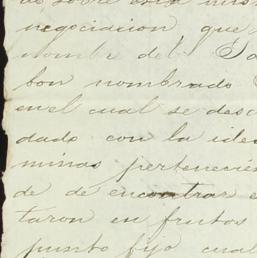 negociacion que
nombre del
bon nombrado
en el cual se desc
dado con la idea
minas pertenecien
de de encontrar e
taron en frutos
punto fijo cual